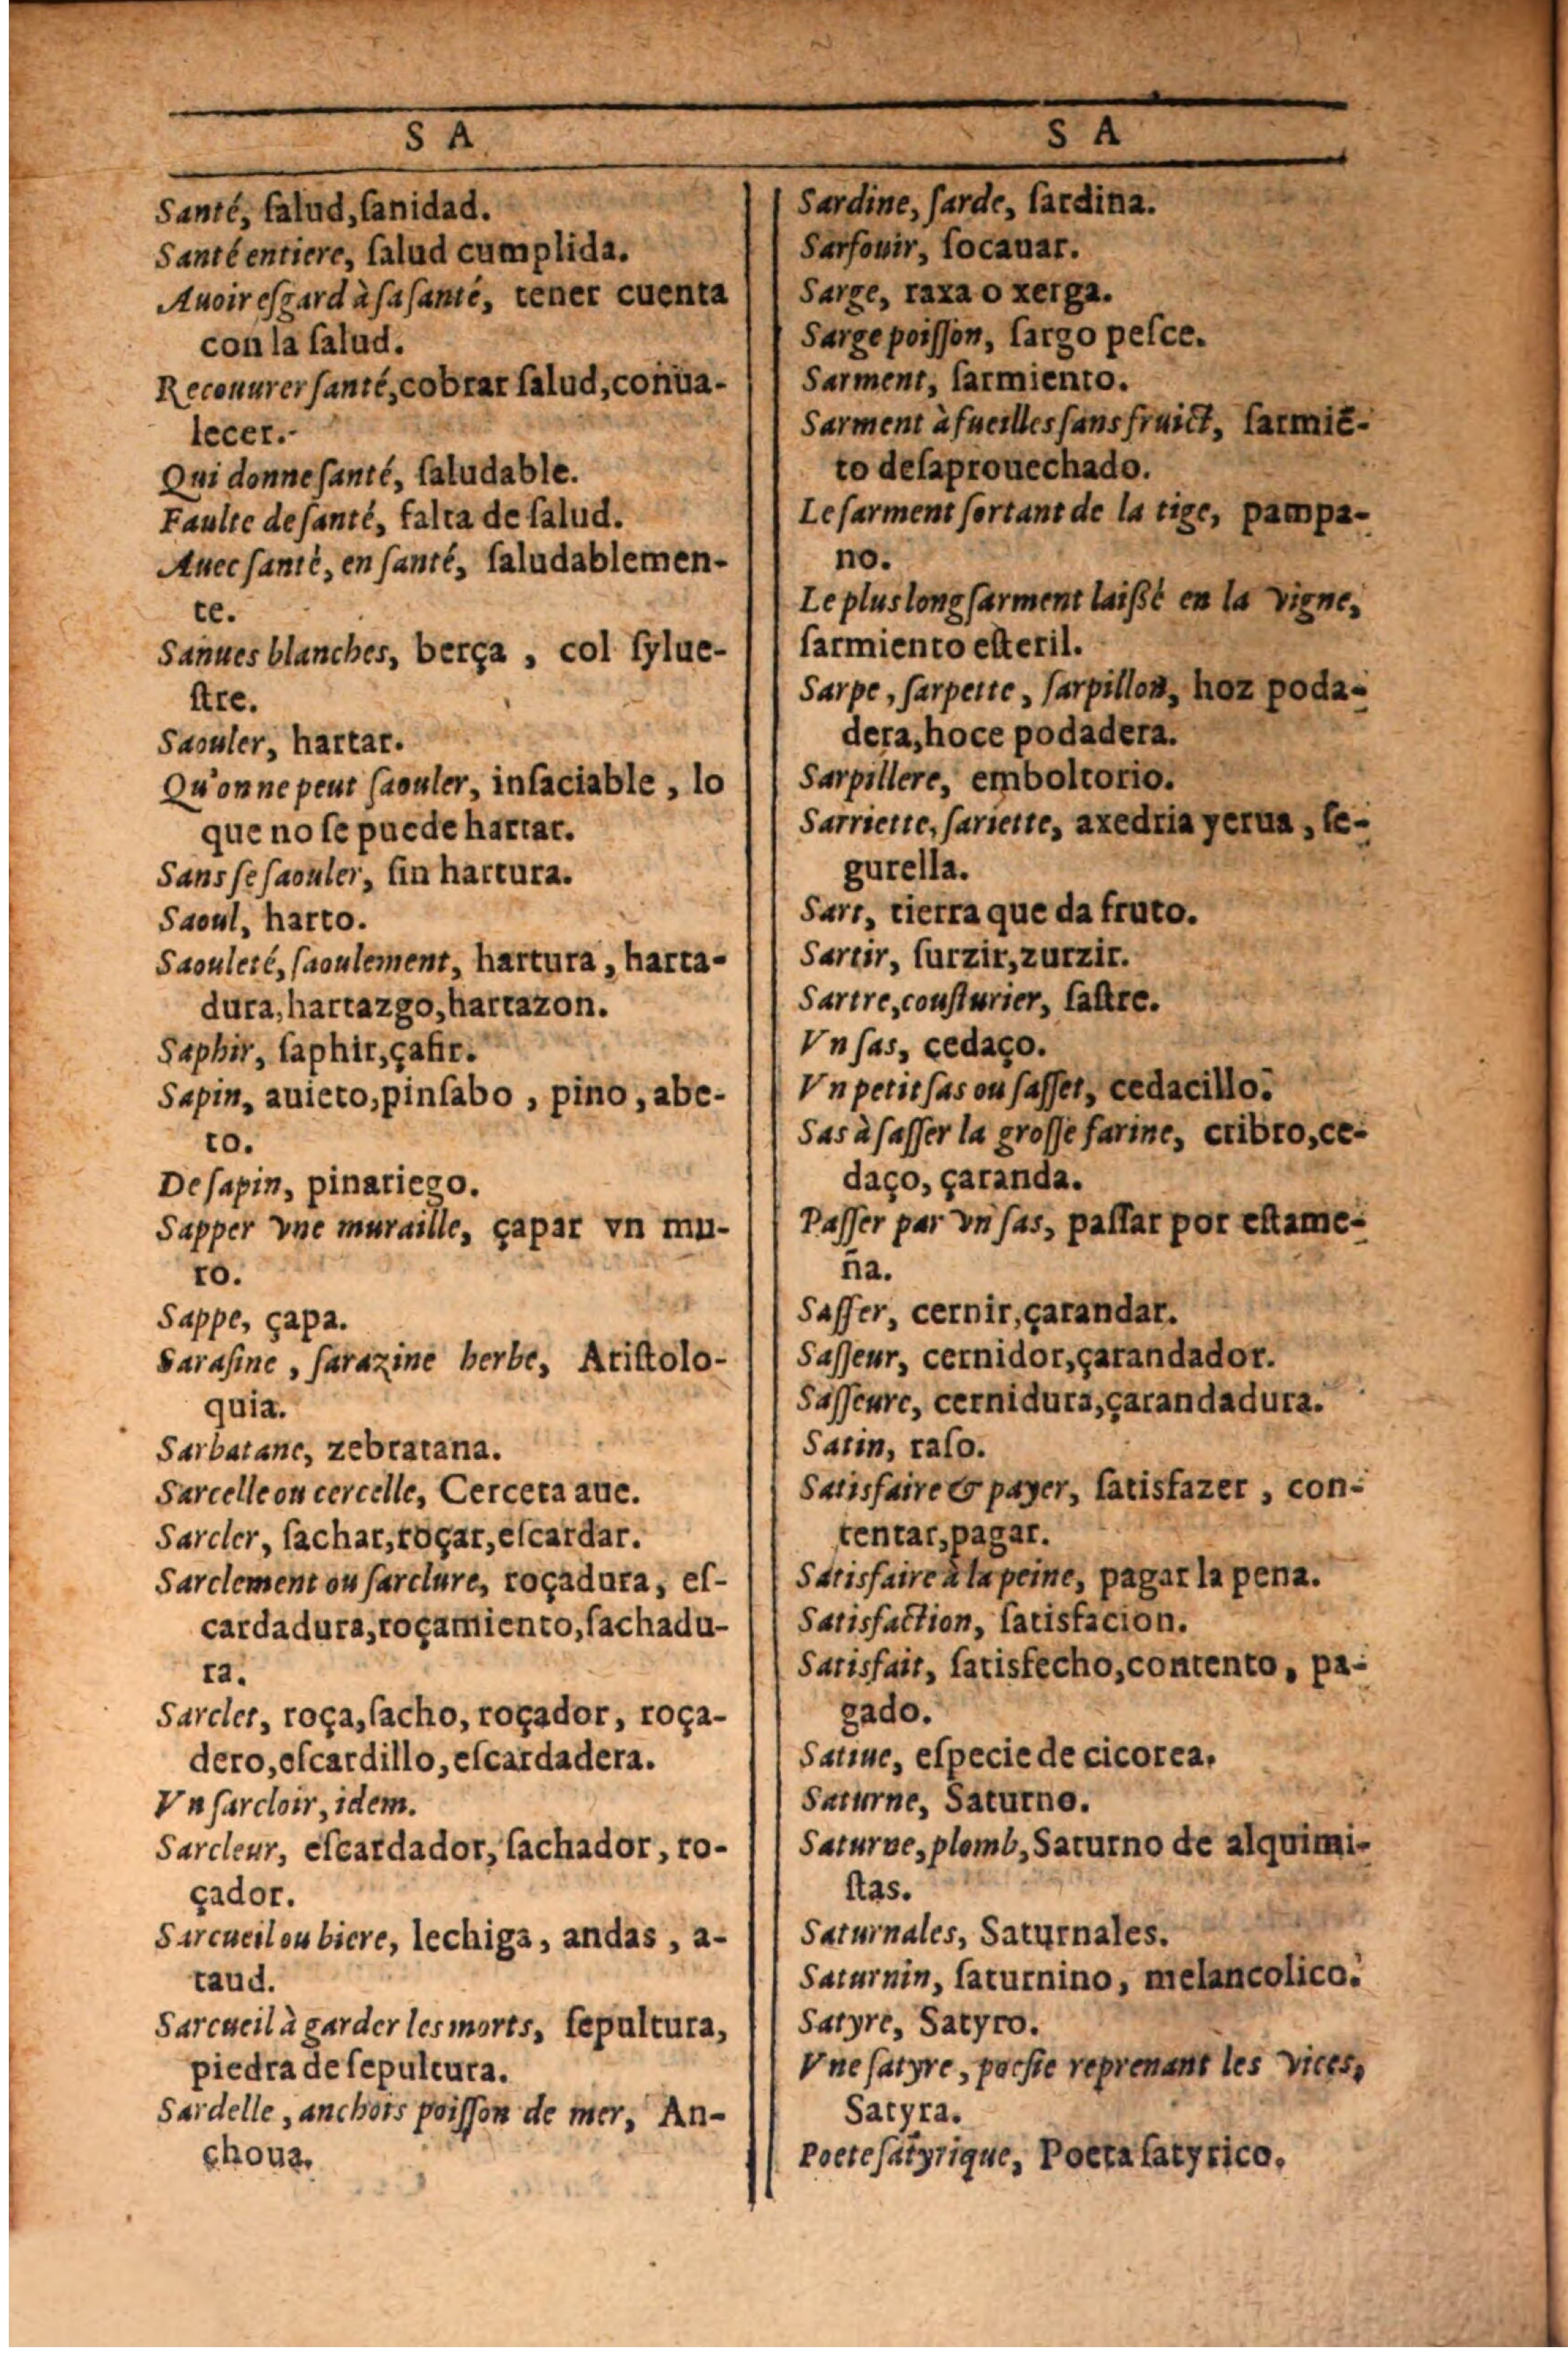 S A
Santé, ſalud,ſanidad.
Santé entiere, ſalud cumplida.
Auoir eſgard à ſa ſanté, tener cuenta
con la ſalud.
Recouurer ſanté,cobrar ſalud,conua-
lecer.
Qui donne ſanté, ſaludable.
Faulte de ſanté, falta de ſalud.
Auec ſanté, en ſanté, ſaludablemen-
te.
Sanues blanches, berça , col ſylue-
ſtre.
Saouler, hartar.
Qu'on ne peut ſaouler, inſaciable , lo
que no ſe puede hartar.
Sans ſe ſaouler, ſin hartura.
Saoul, harto.
Saouleté, ſaoulement, hartura , harta-
dura,hartazgo,hartazon.
Saphir, ſaphir,çafir.
Sapin, auieto,pinſabo , pino , abe-
to.
De ſapin, pinariego.
Sapper vne muraille, çapar vn mu-
ro.
Sappe, çapa.
Saraſine , ſarazine herbe, Ariſtolo-
quia.
Sarbatane, zebratana.
Sarcelle ou cercelle, Cerceta aue.
Sarcler, ſachar,roçar,eſcardar.
Sarclement ou ſarclure, roçadura, eſ-
cardadura,roçamiento,ſachadu-
ra.
Sarclet, roça,ſacho, roçador, roça-
dero,eſcardillo,eſcardadera.
Vn ſarcloir, idem.
Sarcleur, eſcardador, ſachador , ro-
çador.
Sarcueil ou biere, lechiga , andas , a-
taud.
Sarcueil à garder les morts, ſepultura,
piedra de ſepultura.
Sardelle , anchois poiſſon de mer, An-
choua.
S A
Sardine, ſarde, ſardina.
Sarfouir, ſocauar.
Sarge, raxa o xerga.
Sarge poiſſon, ſargo peſce.
Sarment, ſarmiento.
Sarment à fueilles ſans fruict, ſarmiē-
to deſaprouechado.
Le ſarment ſortant de la tige, pampa-
no.
Le plus long ſarment laiſſé en la vigne,
ſarmiento eſteril.
Sarpe , ſarpette , ſarpillon, hoz poda-
dera,hoce podadera.
Sarpillere, emboltorio.
Sarriette, ſariette, axedria yerua , ſe-
gurella.
Sart, tierra que da fruto.
Sartir, ſurzir,zurzir.
Sartre,couſturier, ſaſtre.
Vn ſas, cedaço.
Vn petit ſas ou ſaſſet, cedacillo.
Sas à ſaſſer la groſſe farine, cribro,ce-
daço, çaranda.
Paſſer par vn ſas, paſſar por eſtame-
ña.
Saſſer, cernir,çarandar.
Saſſeur, cernidor,çarandador.
Saſſeure, cernidura,çarandadura.
Satin, raſo.
Satisfaire & payer, ſatisfazer , con-
tentar,pagar.
Satisfaire à la peine, pagar la pena.
Satisfaction, ſatisfacion.
Satisfait, ſatisfecho,contento, pa-
gado.
Satiue, eſpecie de cicorea.
Saturne, Saturno.
Saturne, plomb, Saturno de alquimi-
ſtas.
Saturnales, Saturnales.
Saturnin, ſaturnino, melancolico.
Satyre, Satyro.
Vne ſatyre , poeſie reprenant les vices,
Satyra.
Poete ſatyrique, Poeta ſatyrico.